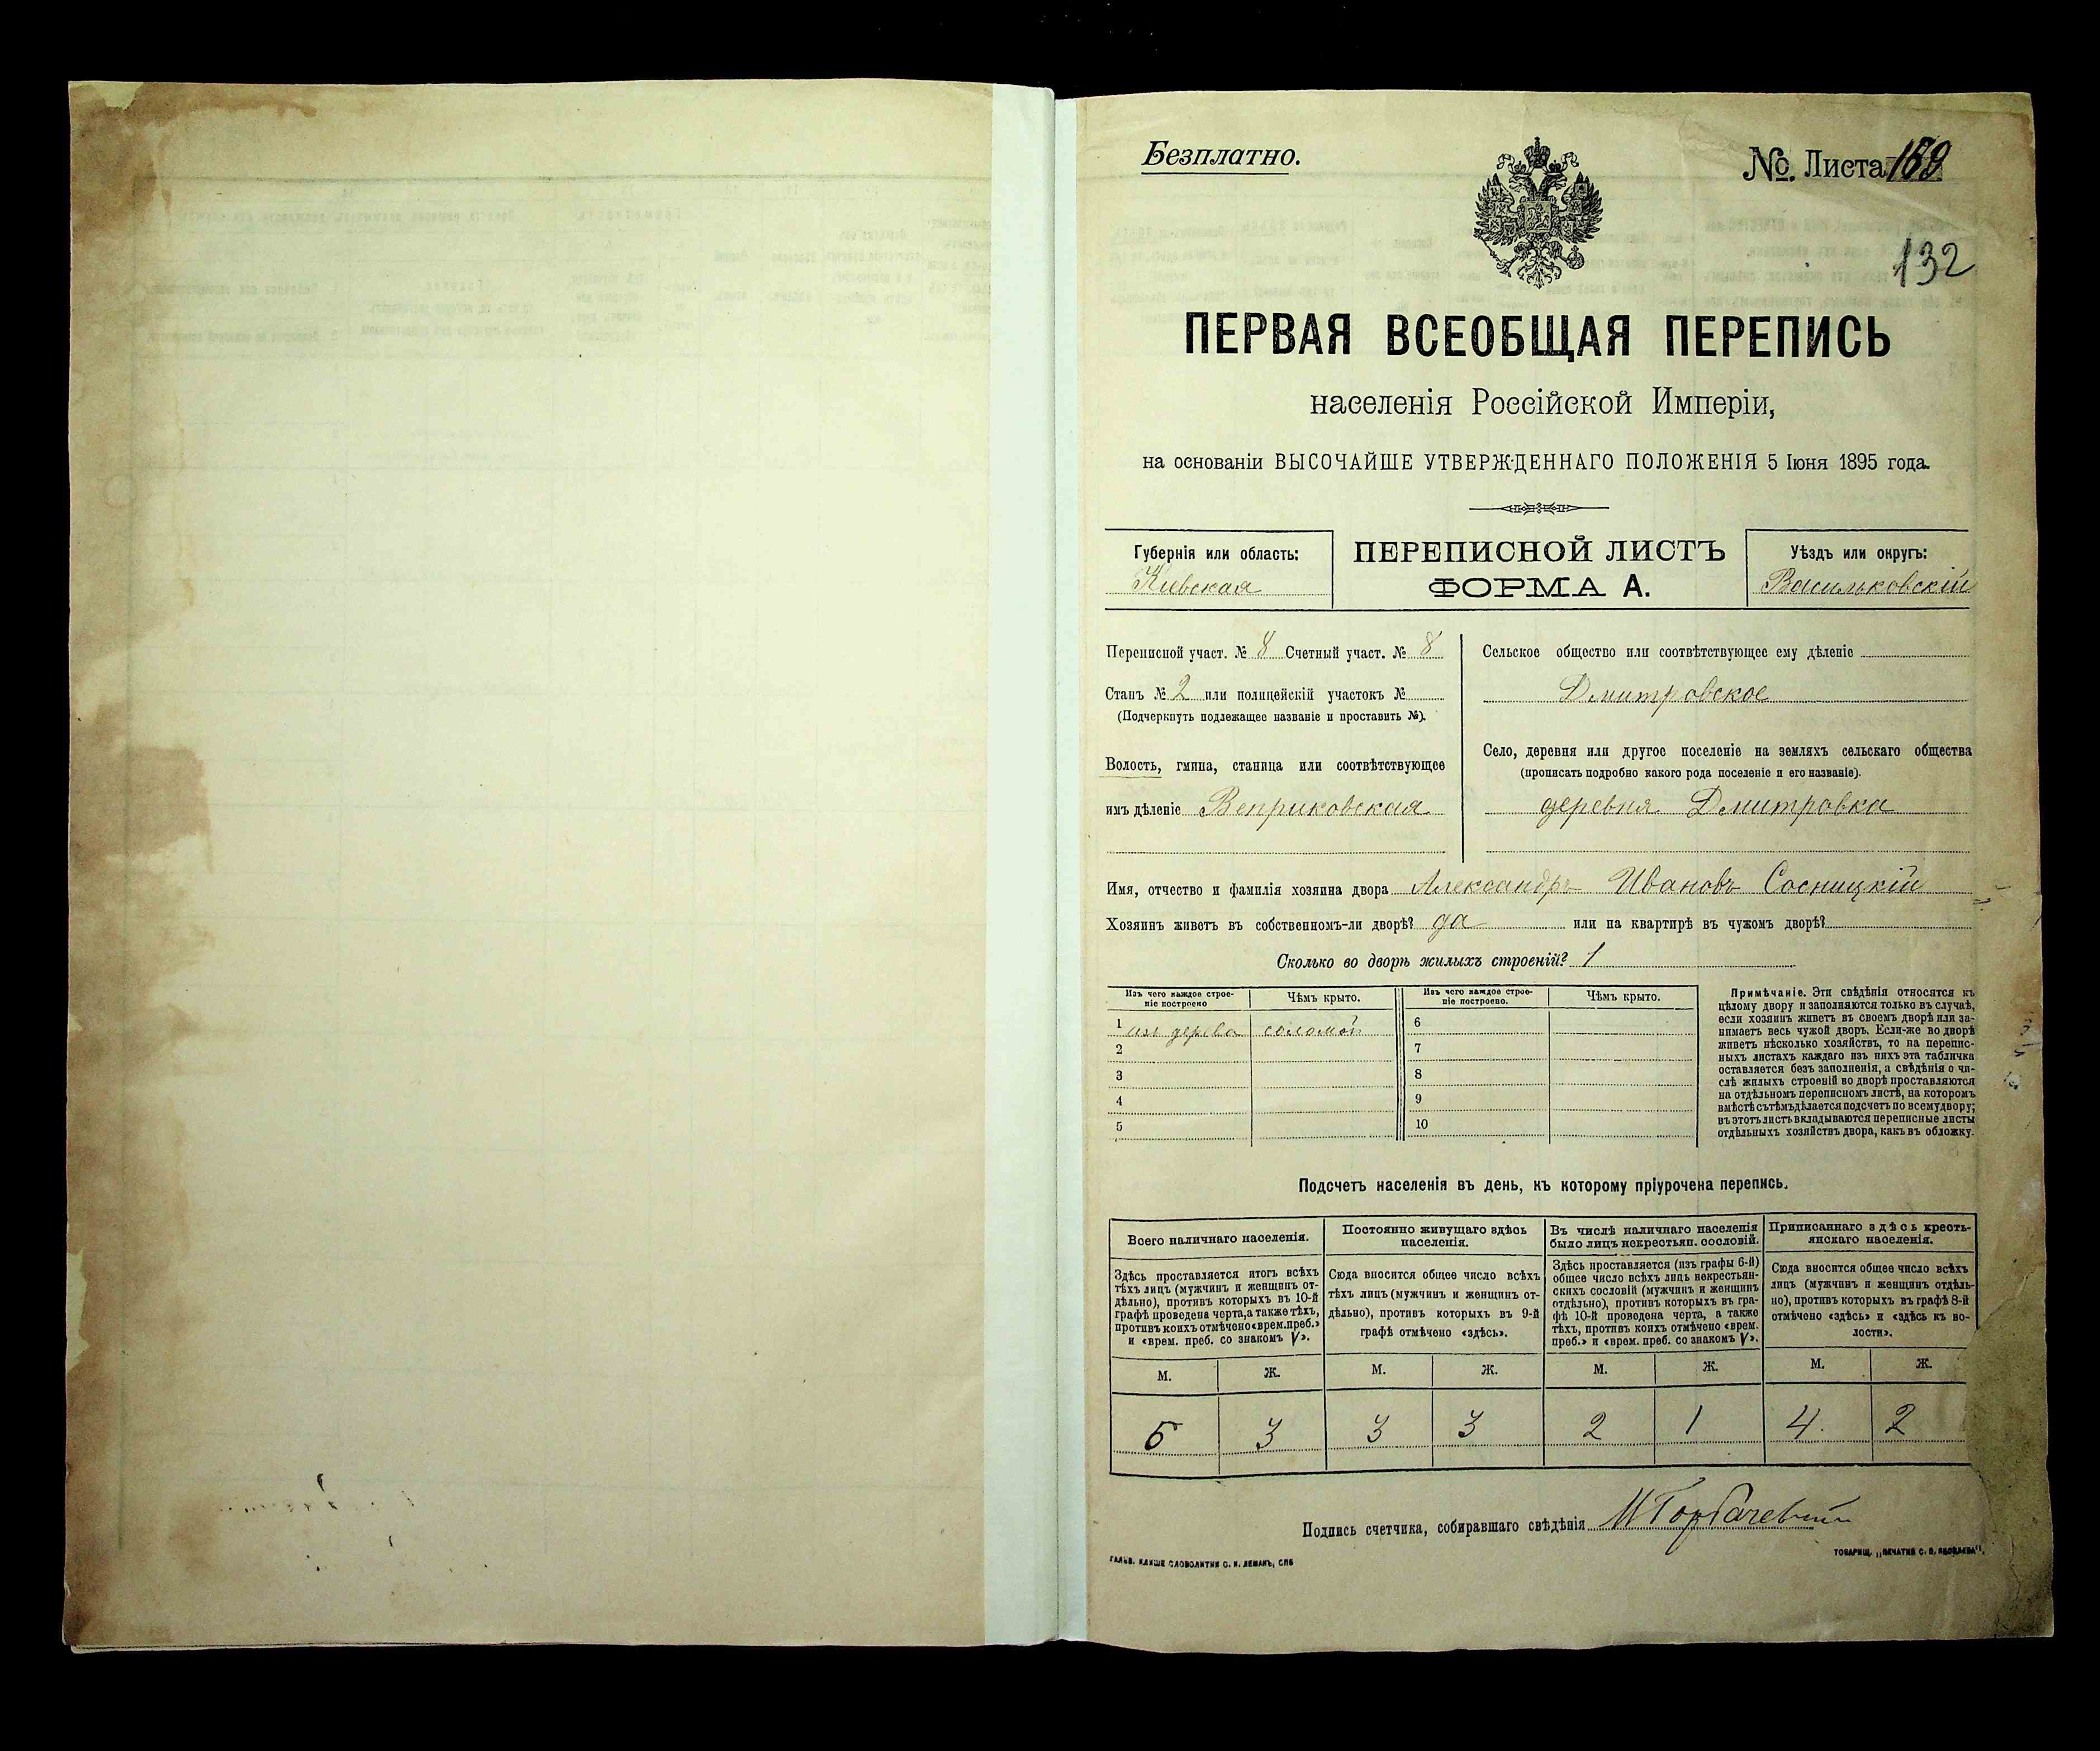 Безплатно.
№. Листа
132
ПЕРВАЯ ВСЕОБЩАЯ ПЕРЕПИСЬ
населенія Россійской Имперіи,
на основаніи ВЫСОЧАЙШЕ УТВЕРЖДЕННАГО ПОЛОЖЕНІЯ 5 Іюня 1895 года.
Губернія или область:
Кіевская
ПЕРЕПИСНОЙ ЛИСТЪ
ФОРМА А.
Уѣздъ или округъ:
Васильковскій
Переписной участ. № 8 Счетный участ. № 8
Станъ № 2 или полицейскій участокъ №
(Подчеркнуть подлежащее названіе и проставить №).
Волость, гмина, станица или соотвѣтствующее
имъ дѣленіе Веприковская
Сельское общество или соотвѣтствующее ему дѣленіе
Дмитровское
Село, деревня или другое поселеніе на земляхъ сельскаго общества
(прописать подробно какого рода поселеніе и его названіе).
деревня Дмитровка
Имя, отчество и фамилія хозяина двора Александръ Ивановъ Сосницкій
Хозяинъ живетъ въ собственномъ-ли дворѣ? да или на квартирѣ въ чужомъ дворѣ?
Сколько во дворѣ жилыхъ строеній? 1
Изъ чего каждое строе-
ніе построено
Чѣмъ крыто.
Изъ чего каждое строе-
ніе построено.
Чѣмъ крыто.
1 изъ дерева соломой
2
3
4
5
6
7
8
9
10
Примѣчаніе. Эти свѣдѣнія относятся къ
цѣлому двору и заполняются только въ случаѣ,
если хозяинъ живетъ въ своемъ дворѣ или за-
нимаетъ весь чужой дворъ. Если-же во дворѣ
живетъ нѣсколько хозяйствъ, то на перепис-
ныхъ листахъ каждаго изъ нихъ эта табличка
оставляется безъ заполненія, а свѣдѣнія о чи-
слѣ жилыхъ строеній во дворѣ проставляются
на отдѣльномъ переписномъ листѣ, на которомъ
вмѣстѣ съ тѣмъ дѣлается подсчетъ по всему двору;
въ этотъ листъ вкладываются переписные листы
отдѣльныхъ хозяйствъ двора, какъ въ обложку.
Подсчетъ населенія въ день, къ которому пріурочена перепись.
Всего наличнаго населенія.
Постоянно живущаго здѣсь
населенія.
Въ числѣ наличнаго населенія
было лицъ некрестьян. сословій.
Приписаннаго здѣсь кресть-
янскаго населенія.
Здѣсь проставляется итогъ всѣхъ
тѣхъ лицъ (мужчинъ и женщинъ от-
дѣльно), противъ которыхъ въ 10-й
графѣ проведена черта, а также тѣхъ,
противъ коихъ отмѣчено «врем. преб.»
и «врем. преб. со знакомъ V».
Сюда вносится общее число всѣхъ
тѣхъ лицъ (мужчинъ и женщинъ от-
дѣльно), противъ которыхъ въ 9-й
графѣ отмѣчено «здѣсь».
Здѣсь проставляется (изъ графы 6-й)
общее число всѣхъ лицъ некрестьян-
скихъ сословій (мужчинъ и женщинъ
отдѣльно), противъ которыхъ въ гра-
фѣ 10-й проведена черта, а также
тѣхъ, противъ коихъ отмѣчено «врем.
преб.» и «врем. преб. со знакомъ V».
Сюда вносится общее число всѣхъ
лицъ (мужчинъ и женщинъ отдѣль-
но), противъ которыхъ въ графѣ 8-й
отмѣчено «здѣсь» и «здѣсь къ во-
лости».
М. Ж. М. Ж. М. Ж. М. Ж.
5 3 3 3 2 1 4 2
Подпись счетчика, собиравшаго свѣдѣнія
ГАЛЬВ. КЛИШЕ СЛОВОЛИТНИ О. И. ЛЕМАНЪ, СПБ
ТОВАРИЩ. „ПЕЧАТНЯ С. П. ЯКОВЛЕВА“.